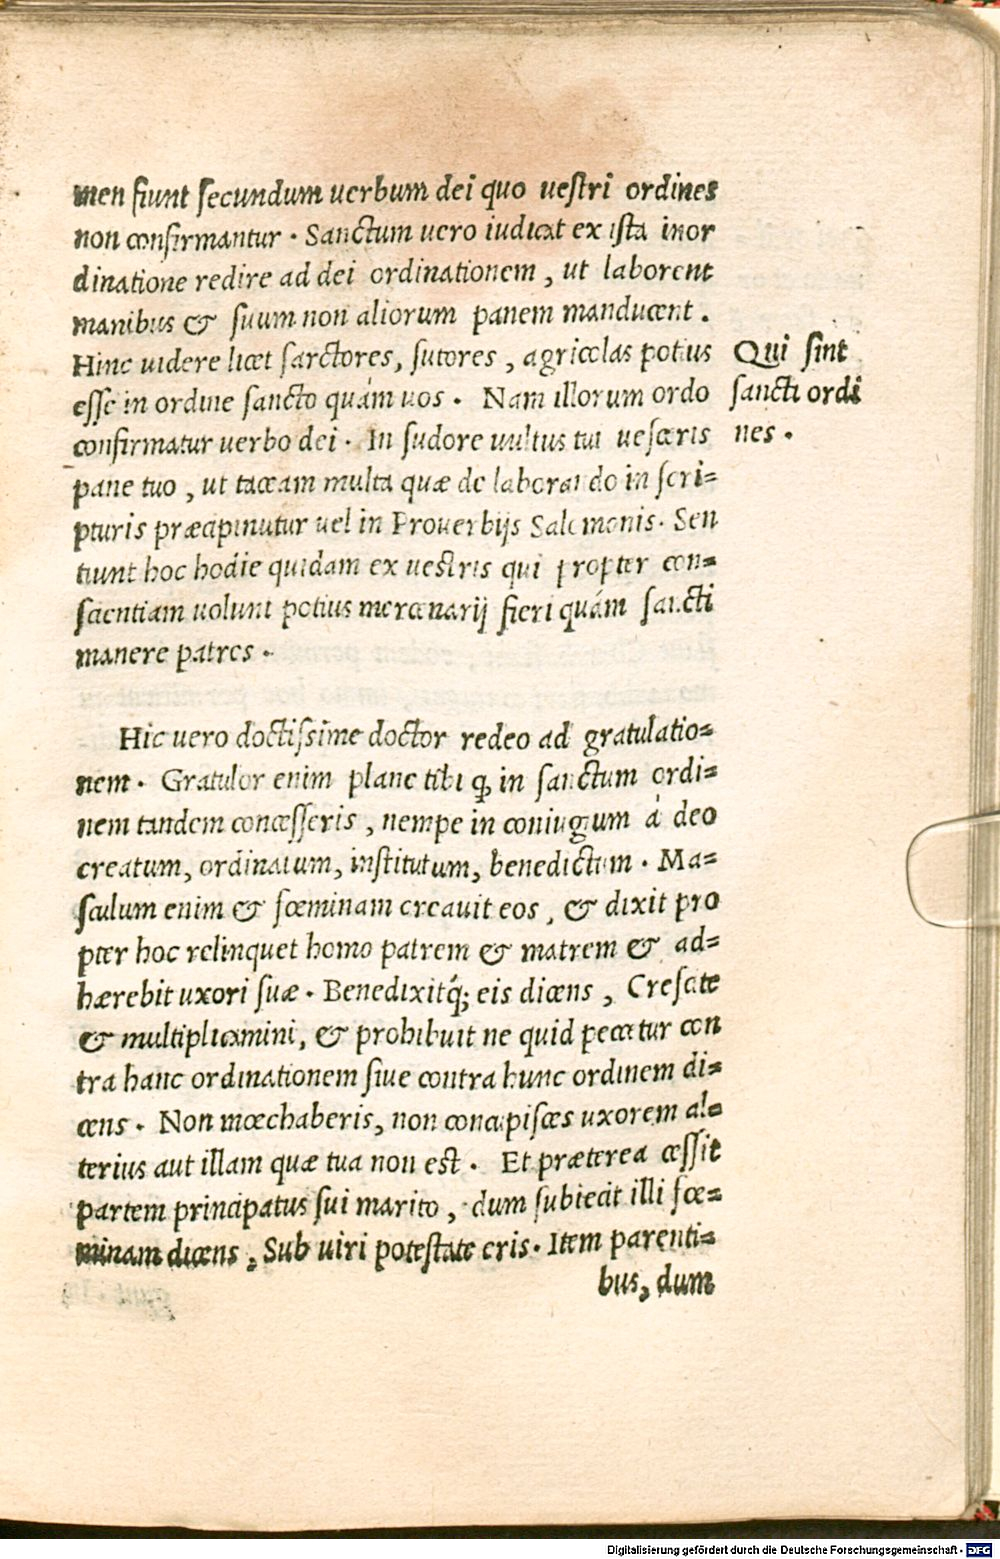 men fiunt secundum uerbum dei quo uestri ordines
non confirmantur. Sanctum uero iudicat ex ista inor
dinatione redire ad dei ordinationem, ut laborent
manibus & suum non aliorum panem manducent.
Hinc uidere licet sarctores, sutores, agricolas potius
esse in ordine sancto quám uos. Nam illorum ordo
confirmatur uerbo dei. In sudore uultus tui uesceris
pane tuo, ut taceam multa quæ de laborando in scri=
pturis præcipiuntur uel in Prouerbijs Salomonis. Sen
tiunt hoc hodie quidam ex uestris qui propter con=
scientiam uolunt potius mercenarij fieri quám sancti
manere patres.
Qui sint
sancti ordi
nes.
Hic uero doctissime doctor redeo ad gratulatio=
nem. Gratulor enim plane tibi ꝙ in sanctum ordi=
nem tandem concesseris, nempe in coniugium á deo
creatum, ordinatum, institutum, benedictum. Ma=
sculum enim & fœminam creauit eos, & dixit pro
pter hoc relinquet homo patrem & matrem & ad=
hærebit uxori suæ. Benedixitq́; eis dicens, Crescite
& multiplicamini, & prohibuit ne quid peccetur con
tra hanc ordinationem siue contra hunc ordinem di=
cens. Non mœchaberis, non concupisces uxorem al=
terius aut illam quæ tua non est. Et præterea cessit
partem principatus sui marito, dum subiecit illi fœ=
minam dicens, Sub uiri potestate eris. Item parenti=
bus, dum
Digitalisierung gefördert durch die Deutsche Forschungsgemeinschaft - DFG